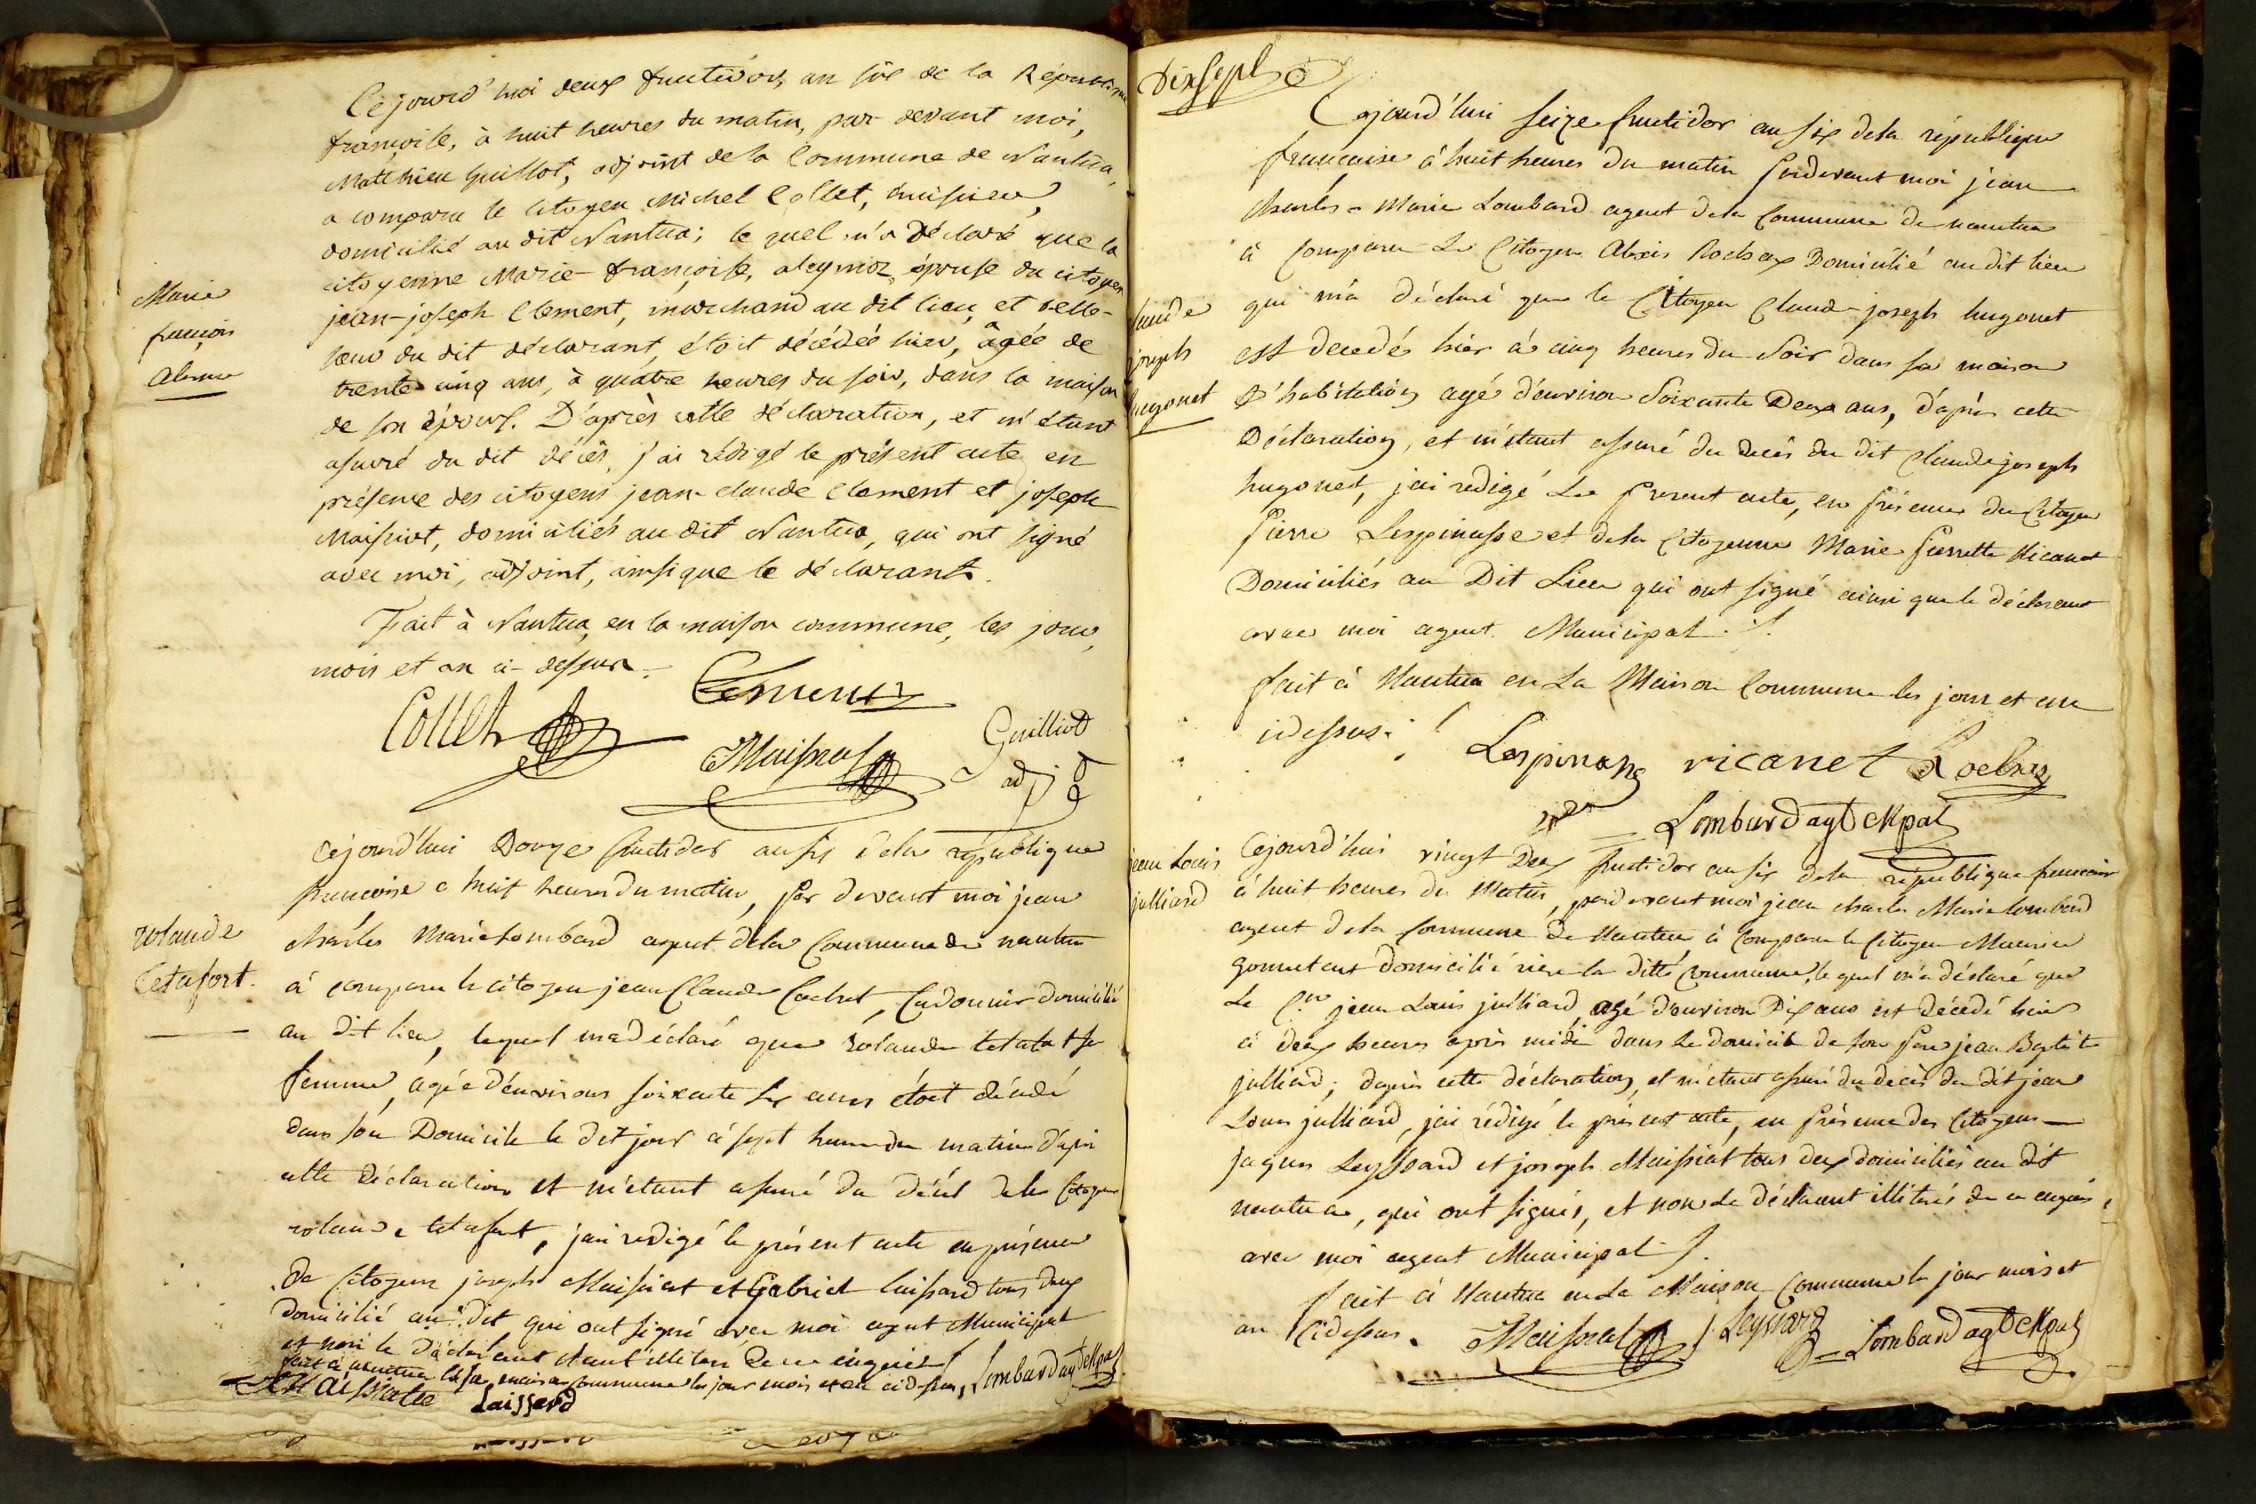 Cejourd'hui deux fructidor, an six de la République
françoise, à huit heures du matin, par devant moi,
Mathieu Guillot, adjoint de la Commune de Nantua,
a comparu le citoyen Michel Collet, huissier,
domicilié au dit Nantua; le quel m'a déclaré que la
citoyenne Marie-françoise, épouse du citoyen
jean-joseph Clement, marchand au dit lieu, et belle-
sœur du dit déclarant, étoit décédée hier, âgée de
trente cinq ans, à quatre heures du soir, dans la maison
de son époux. D'après cette déclaration, et m'étant
assuré du dit décès, j'ai rédigé le présent acte en
présence des citoyens jean-claude Clement et joseph
Maissiat, domiciliés au dit Nantua, qui ont signé
avec moi, adjoint, ainsi que le déclarant.
Fait à Nantua, en la maison commune, les jour,
mois et an ci-dessus.
Marie
françois
Collet Clement
Maissiat Guilliot
adj
Cejourd'hui Douze fructidor an six dela république
francoise a huit heures du matin, par devant moi jean
charles Marie Lombard agent dela Commune de nantua
à comparu le citoyen jean Claude Cochet, Cordonnier domicilié
au dit lieu, lequel ma déclaré que rolande
femme, agée d'environs soixante six anns étoit décédé
dans son Domicile le dit jour à sept heures du matin d'apres
cette déclaration et m'étant assuré du décès dela Citoyenne
rolande, j'ai redigé le présent acte en présence
De Citoyens joseph Maissiat et Gabriel laissard tous deux
domicilié au dit qui ont signé avec moi agent Municipal
et non le Déclarant étant illiteré de ce enquis
fait à nantua en la maison commune les jour mois et an cidessus, Lombard agt Mpal
Maissiatte Laissard
rolande
Letafort.
Dixsept
Cejourd'hui seize fructidor an six dela république
francaise à huit heures du matin pardevant moi jean
charles-Marie Lombard agent dela Commune de nantua
à comparu Le Citoyen Alexis Rochex Domicilié au dit lieu
qui m'a déclaré que le Citoyen Claude-joseph hugonet
est decedés hier à cinq heures du Soir dans sa maison
D'habitation agé d'environ Soixante Deux ans, d'après cette
Déclaration, et m'étant assuré du décés du dit Claude joseph
hugonet, j'ai redigé Le present acte, en présence du Citoyen
Pierre Lespinasse et dela Citoyenne Marie Pierrette Ricanet
Domiciliés au Dit Lieu qui ont signé ainsi que le déclarant
avec moi agent Municipal ./.
fait à Nantua en La Maison Commune les jour et an
cidessus.
joseph
hugonet
Lespinasse ricanet Rochex
Lombard agt Mpal
jean Louis
julliard
Cejourd'hui vingt Deux fructidor an six dela république francaise
à huit heures du Matin, pardevant moi jean charles Marie Lombard
agent dela Commune de Nantua à Comparu le Citoyen Maurice
domicilié rière la ditte Commune, le quel m'a déclaré que
Le Cen jean Louis julliard, agé d'environ Dix ans est Décédé hier
à deux heures après midi dans Le domicile de son père jean Baptiste
julliard; d'après cette déclaration, et m'étant assuré du décès du dit jean
Louis julliard, j'ai rédigé le présent acte, en présence des Citoyens
jaques Leyssard et joseph Maissiat tous deux domiciliés au dit
nantua, qui ont signés, et non Le déclarant illiterés de ce enquis
avec moi agent Municipal ./.
fait à Nantua en La Maison Commune le jour mois et
an Cidessus. Maissiat J Leyssard Lombard agt Mpal